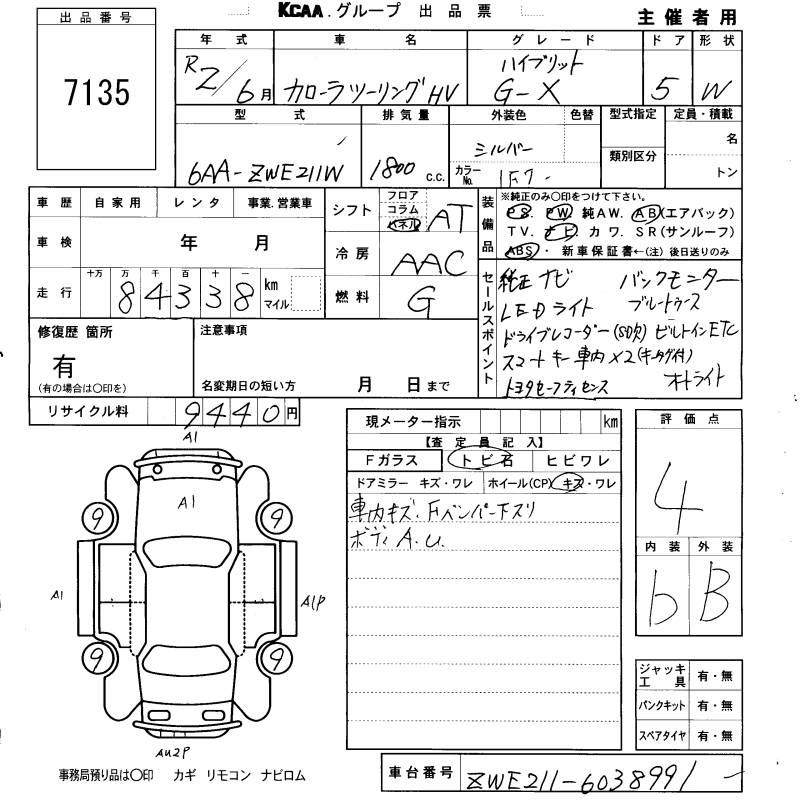 KCAA.グループ 出品票
主催者用
出品番号
7135
年式 車名 グレード ドア 形状
R2/6月 カローラツーリングHV ハイブリット G-X 5 W
型式 排気量 外装色 色替 型式指定 定員・積載
6AA-ZWE211W 1800 c.c. シルバー カラーNo. 1F7 類別区分 名 トン
車歴 自家用 レンタ 事業.営業車
車検 年 月
走行 十万 万 千 百 十 一 km マイル
84338
シフト フロア コラム パネル AT
冷房 AAC
燃料 G
装備品 ※純正のみ○印をつけて下さい。
PS. PW 純AW. AB(エアバック)
TV. ナビ カワ. SR(サンルーフ)
ABS・ 新車保証書←(注)後日送りのみ
セールスポイント
純正ナビ バックモニター
LEDライト ブルートゥース
ドライブレコーダー(SD欠) ビルトインETC
スマートキー車内×2(キータグ付)
トヨタセーフティセンス オートライト
修復歴 箇所
有
(有の場合は○印を)
注意事項
名変期日の短い方 月 日まで
リサイクル料 9440円
現メーター指示 km
【査定員記入】
Fガラス トビ石 ヒビワレ
ドアミラー キズ・ワレ ホイール(CP) キズ・ワレ
車内キズ. Fバンパー下スリ
ボディA.U.
評価点
4
内装 外装
b B
A1
A1
9 9
A1 A1P
9 9
AU2P
ジャッキ工具 有・無
パンクキット 有・無
スペアタイヤ 有・無
事務局預り品は○印 カギ リモコン ナビロム
車台番号 ZWE211-6038991